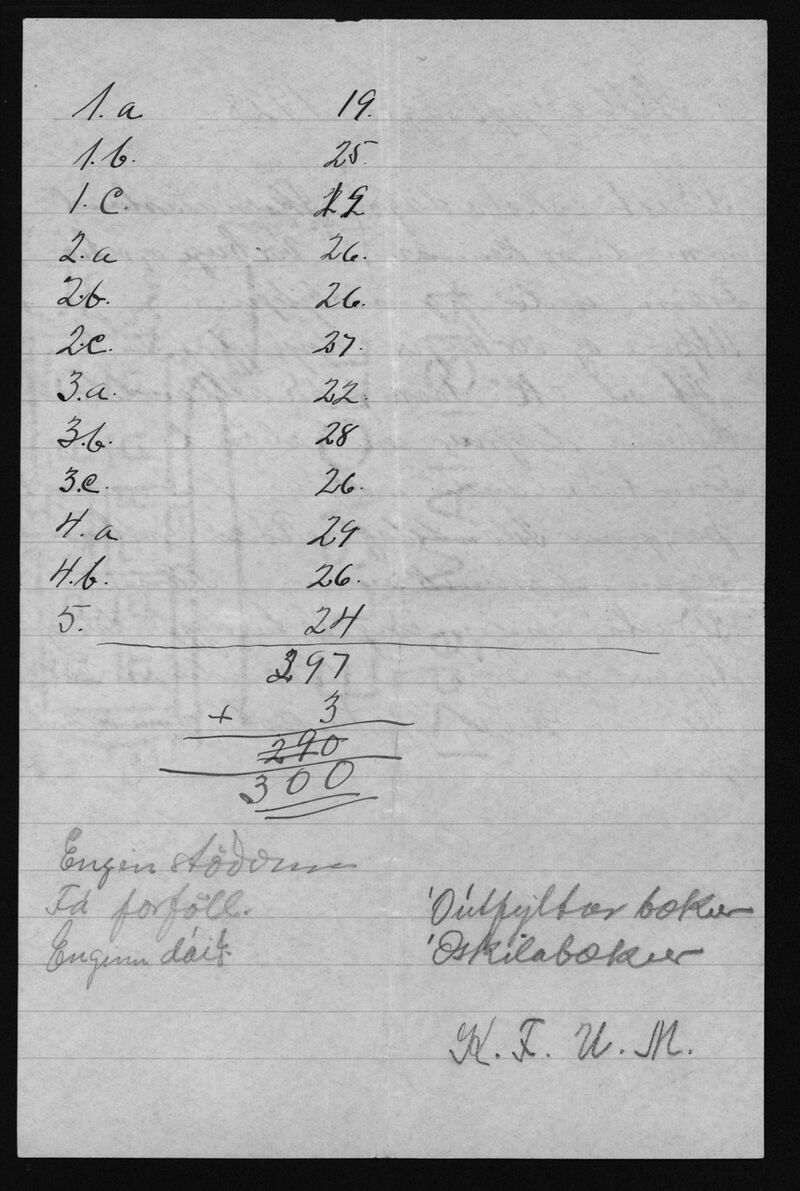 1.a 19.
1.b. 25.
1.c. 19
2.a 26.
2.b. 26.
2.c. 27.
3.a. 22.
3.b. 28
3.c. 26.
4.a 29
4.b. 26.
5. 24
297
+ 3
290
300
Engin
Fá forföll.
Enginn dáið
Óútfyltar bækur
Óskilabækur
K. F. U. M.